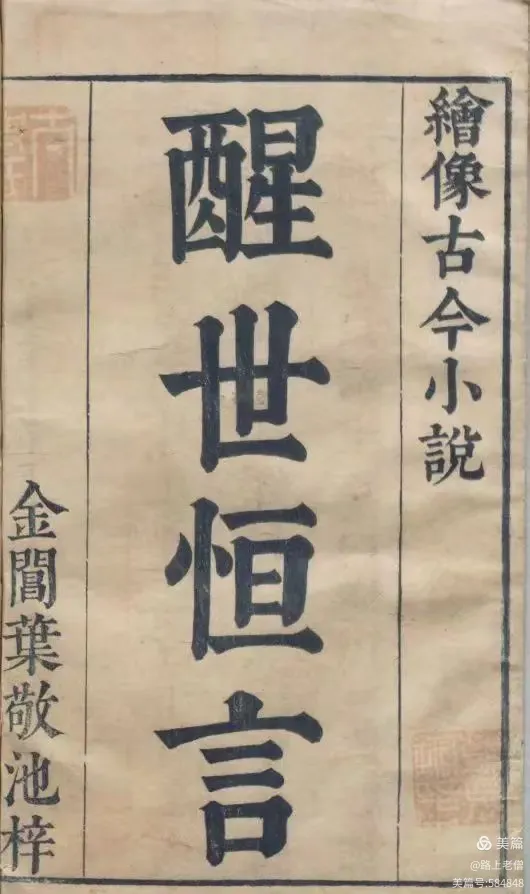 繪像古今小說
醒世恒言
金閶葉敬池梓
美篇
@路上老僧
美篇号:584848